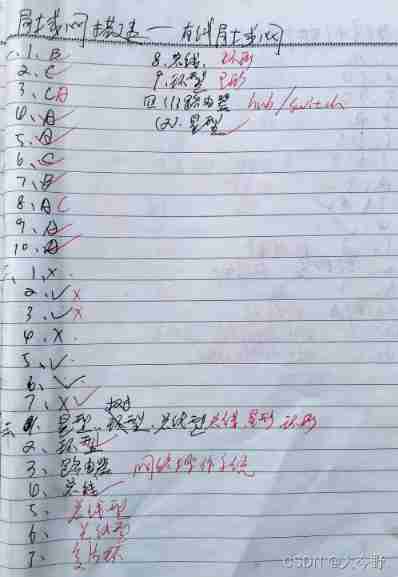 局域网搭建——有线局域网
一、1、B
2、C
3、C A
4、A
5、A
6、C
7、B
8、A C
9、A
10、A
二、1、×
2、✓ ×
3、✓ ×
4、×
5、✓
6、✓
7、× ✓
三、1、星型、环型、总线型 树 总线 星形 环形
2、环型
3、路由器 网络操作系统
4、总线
5、总线型
6、总线型
7、
8、总线 环形
9、环型 星形
四 (1)路由器 hub/switch
(2)、星型
CSDN @大今野